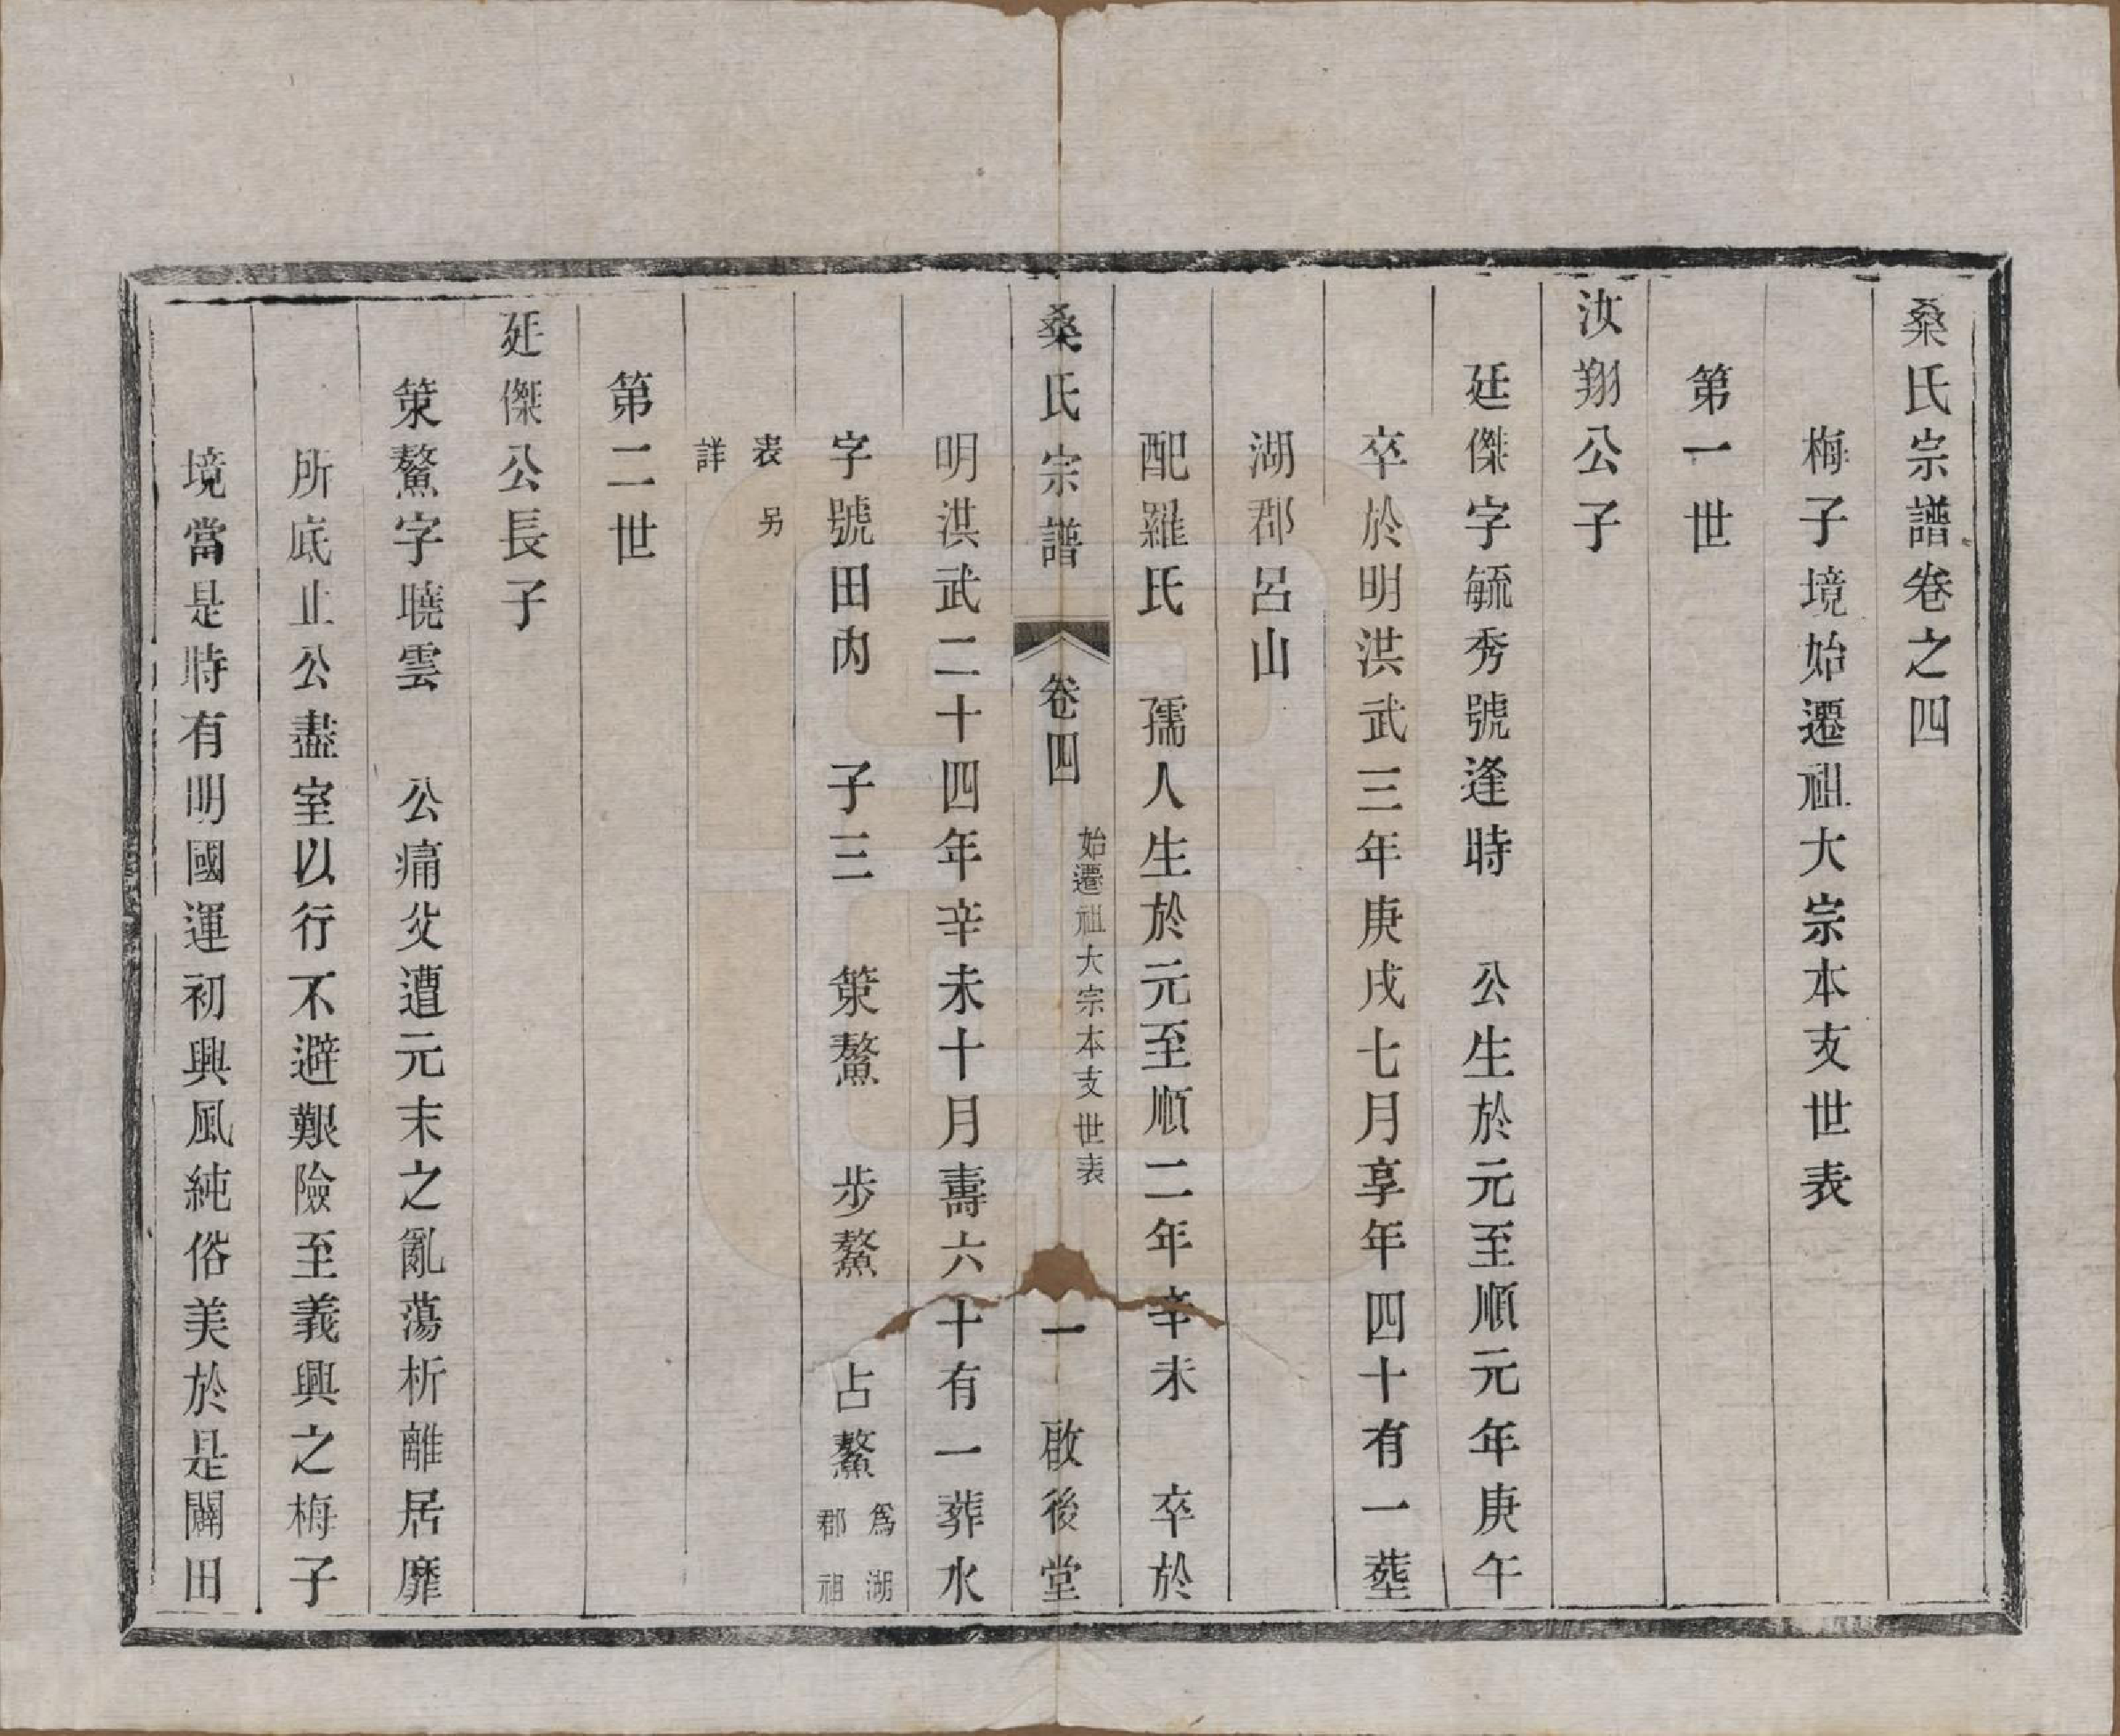 桑氏宗譜卷之四
梅子境始遷祖大宗本支世表
第一世
汝翔公子
廷傑字毓秀號逢時　公生於元至順元年庚午
卒於明洪武三年庚戌七月享年四十有一塟
湖㳇呂山
配羅氏　孺人生於元至順二年辛未　卒於
桑氏宗譜　卷四　始遷祖大宗本支世表　一　啟後堂
明洪武二十四年辛未十月壽六十有一葬水
字號田內　子三　策鰲　步鰲　占鰲　為湖
郡祖
表另
詳
第二世
廷傑公長子
策鰲字曉雲　公痛父遭元末之亂蕩析離居靡
所底止公盡室以行不避艱險至義興之梅子
境當是時有明國運初興風純俗美於是闢田